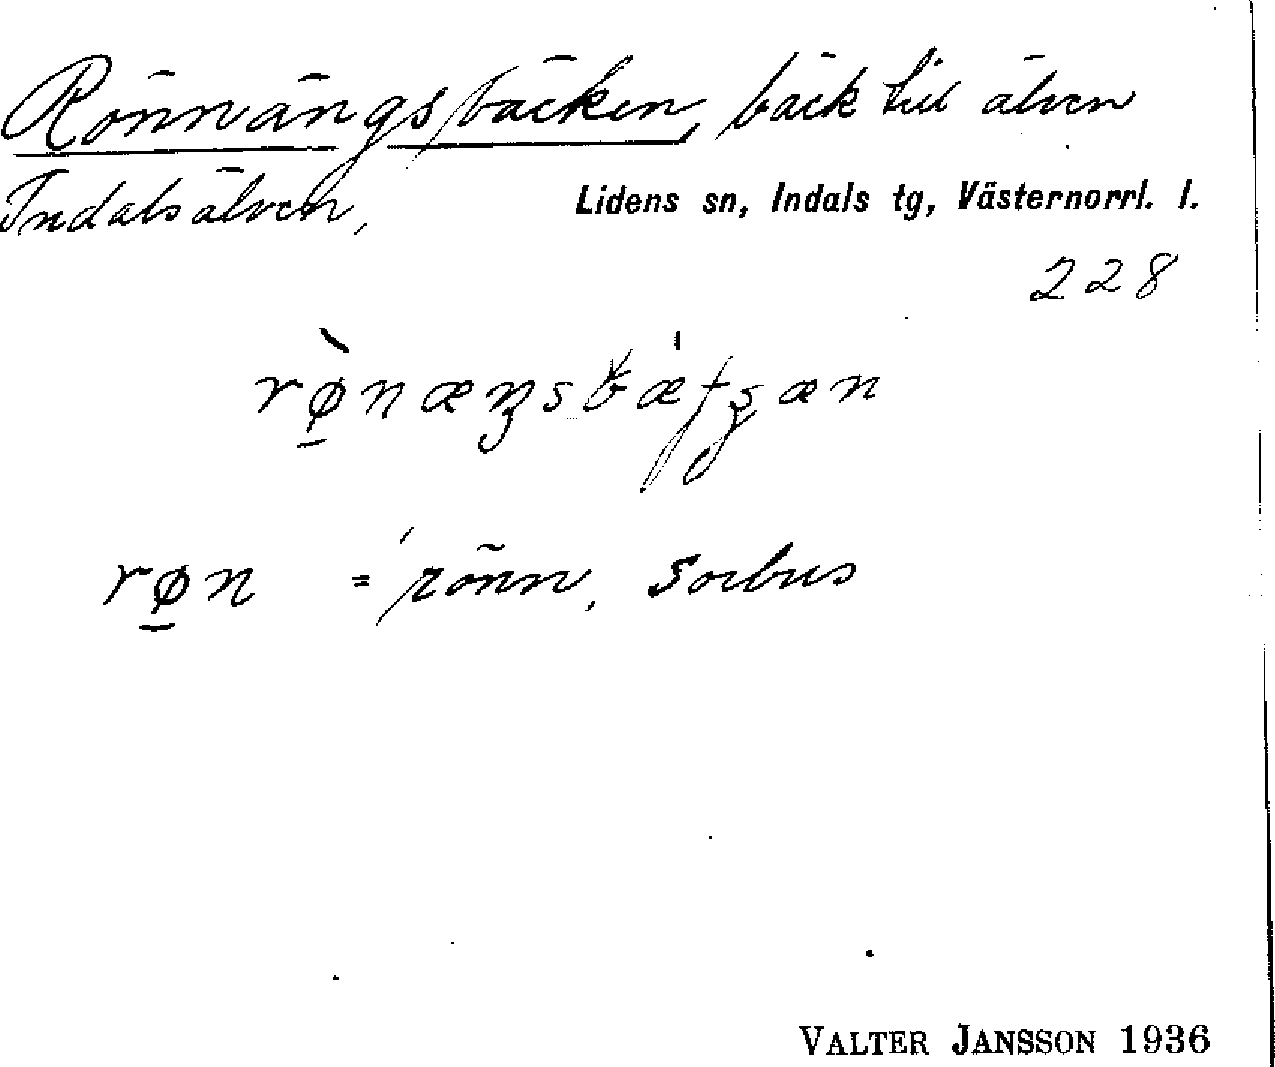 Rönnvängsbäcken, bäck till älven
Indalsälven,
Lidens sn, Indals tg, Västernorrl. l.
228
rø̱̀næŋsbæ̍tʂæn
rø̱n = rönn, Sorbus
VALTER JANSSON 1936